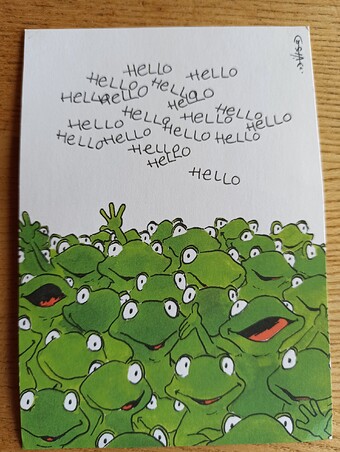 HELLO
HELLO HELLO
HELLO HELLO HELLO
HELLO
HELLO HELLO
HELLO HELLO HELLO
HELLO HELLO HELLO HELLO
HELLO
HELLO
HELLO